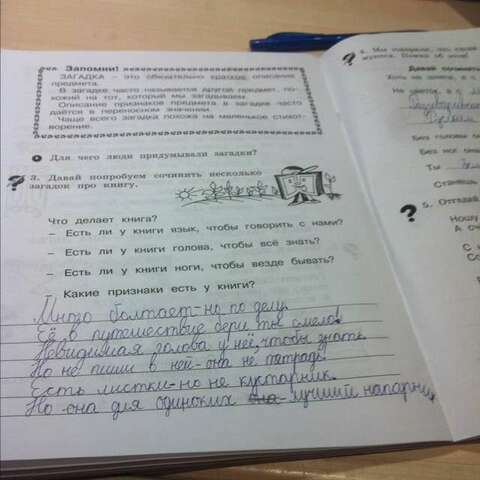 Запомни!
ЗАГАДКА – это обязательно краткое описание
предмета.
В загадке часто называется другой предмет, по-
хожий на тот, который мы загадываем.
Описание признаков предмета в загадке часто
даётся в переносном значении.
Чаще всего загадка похожа на маленькое стихот-
ворение.
Для чего люди придумывали загадки?
3. Давай попробуем сочинить несколько
загадок про книгу.
Что делает книга?
– Есть ли у книги язык, чтобы говорить с нами?
– Есть ли у книги голова, чтобы всё знать?
– Есть ли у книги ноги, чтобы везде бывать?
Какие признаки есть у книги?
Много болтает-но по делу.
Её в путешествие бери ты смело!
Невидимая голова у неё, чтобы знать
Но не пиши в ней-она не тетрадь.
Есть листки-но не кустарник.
Но она для одиноких лучший напарник
4. Мы говорили, что
Давай
Хоть не шляпа, а с
Не цветок, а с
Без головы
Без ног
Ты
Станешь
5. Отгадай
Ношу
А
С